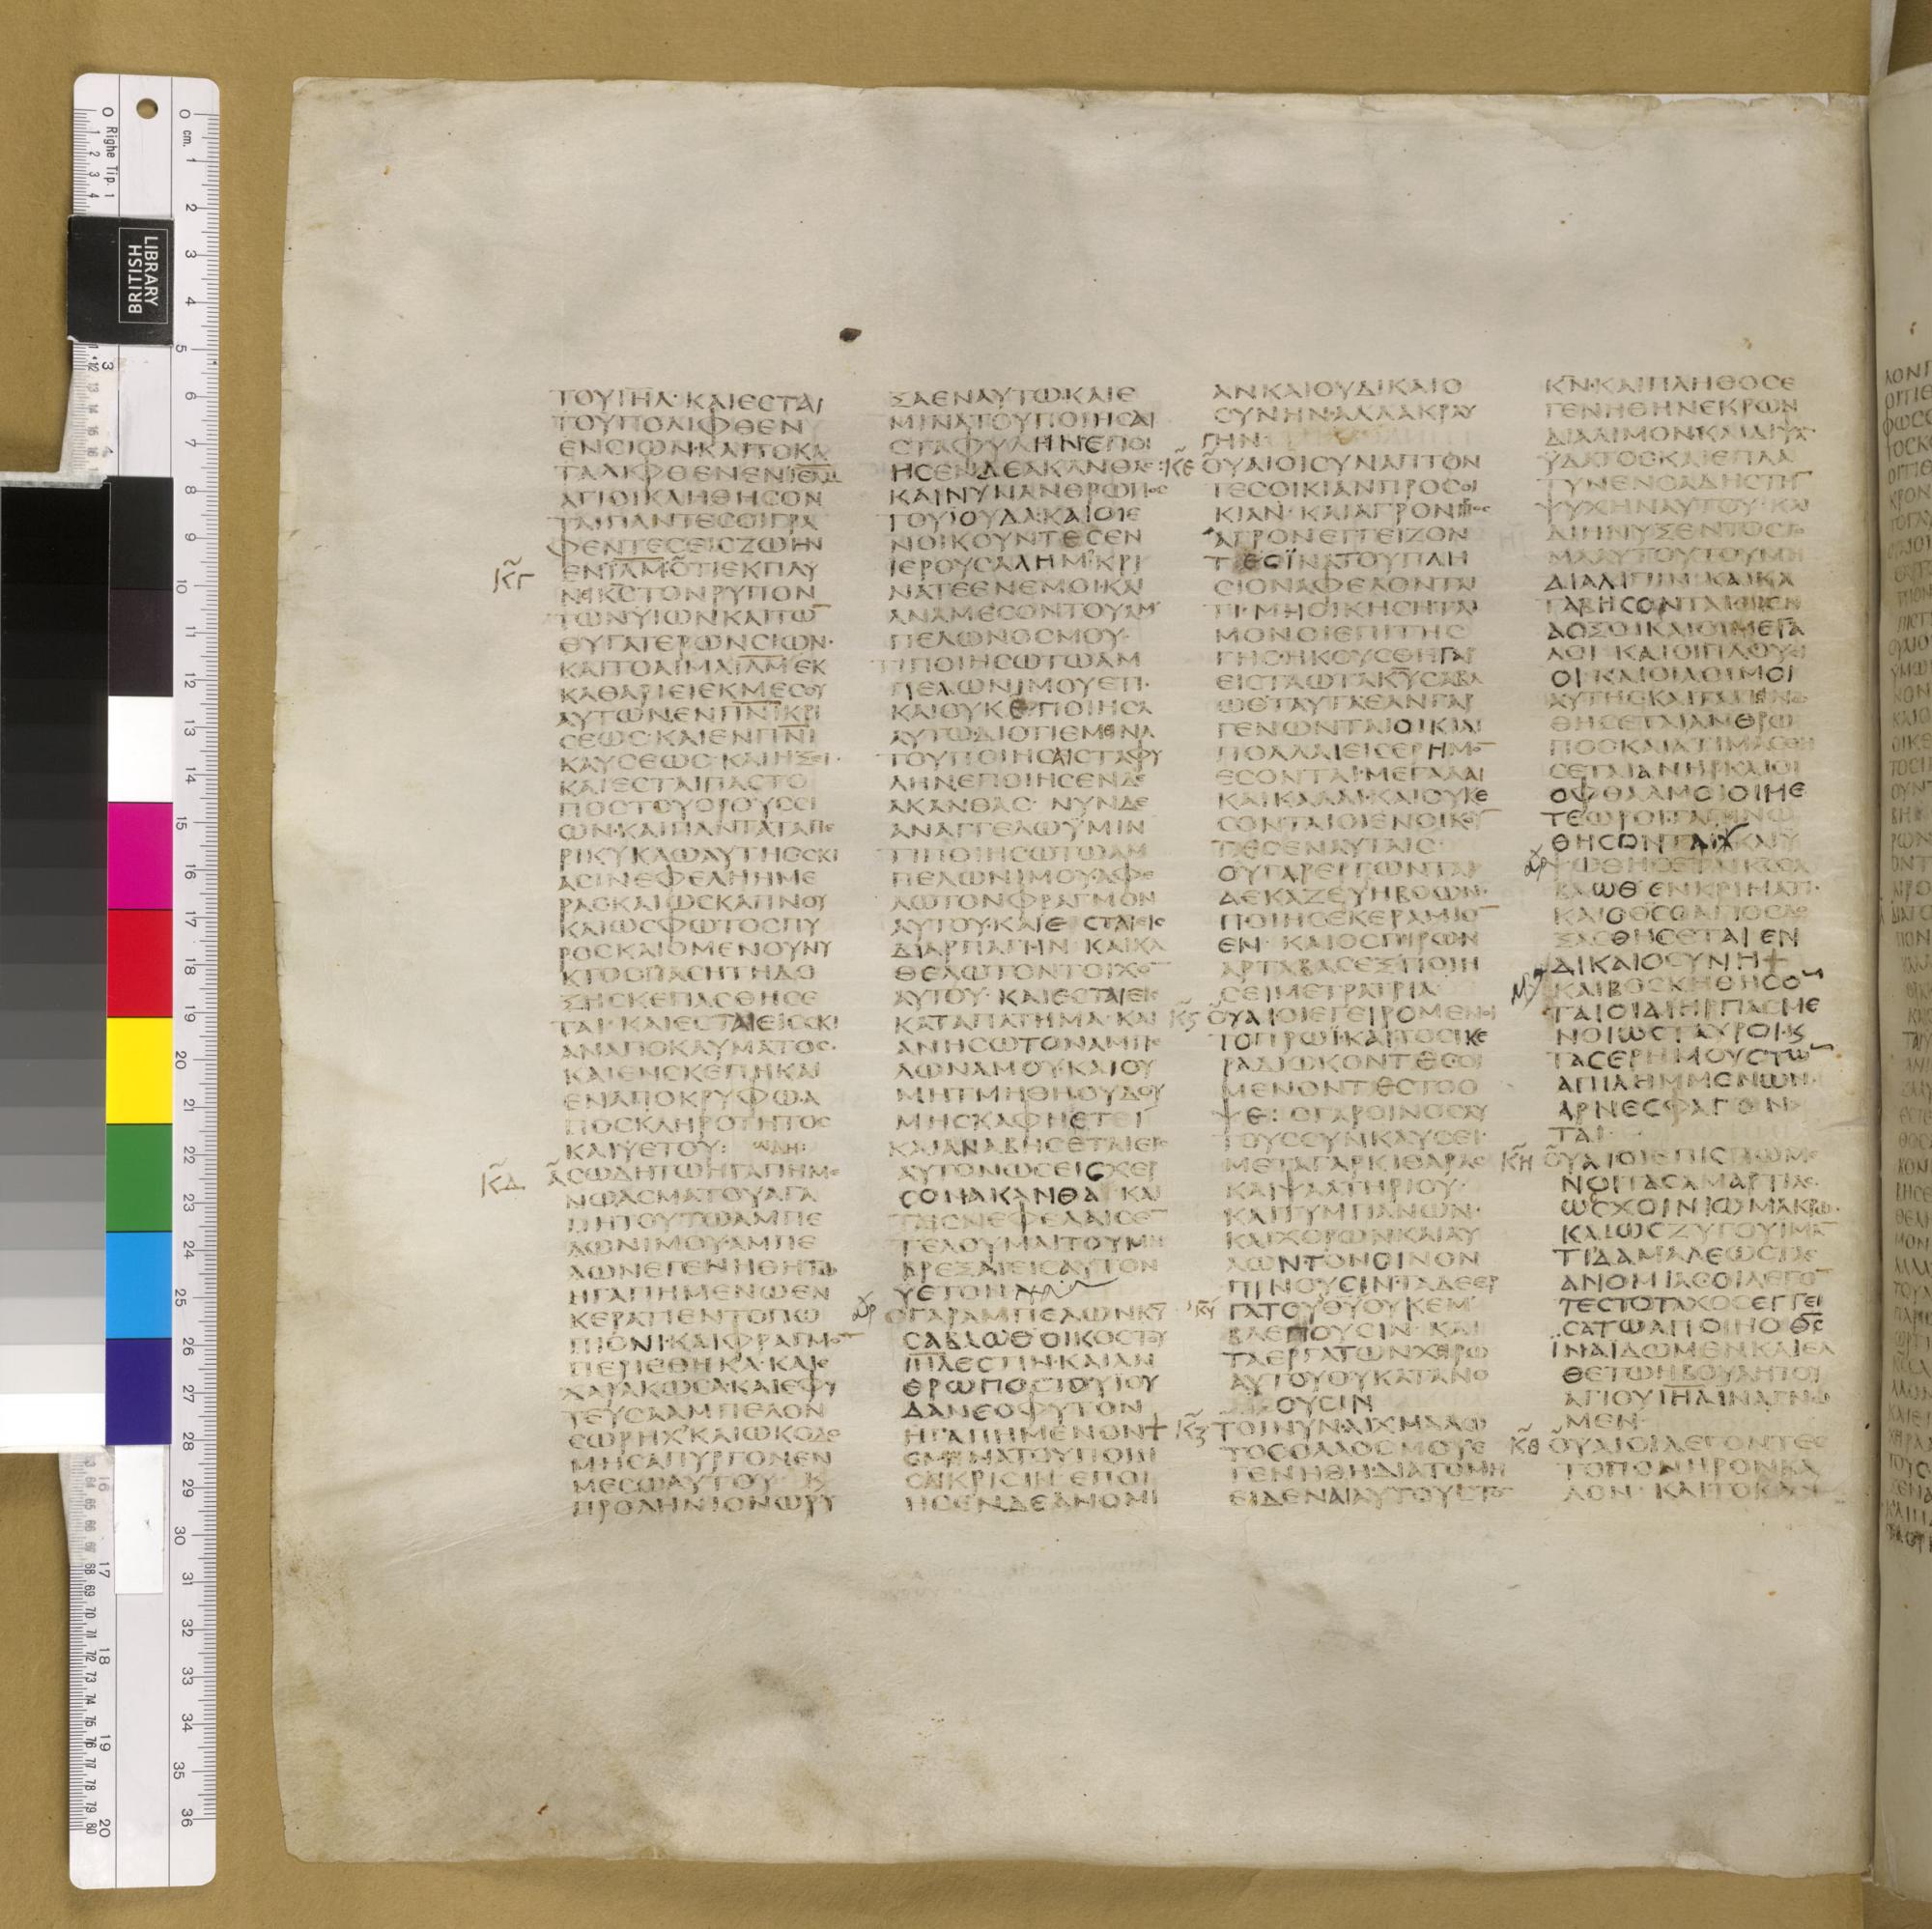 ΤΟΥΙΗΛ·ΚΑΙΕϹΤΑΙ
ΤΟΥΠΟΛΙΦΘΕΝ
ΕΝϹΙΩΝ·ΚΑΙΤΟΚΑ
ΑΓΙΟΙΚΛΗΘΗϹΟΝ
ΤΑΙΠΑΝΤΕϹΟΙΓΡΑ
ΦΕΝΤΕϹΕΙϹΖΩΗΝ
ΚΓ ΕΝΙΛΜΟΤΙΕΚΠΛΥ
ΝΕΙΚϹΤΟΝΡΥΠΟΝ
ΤΩΝΥΙΩΝΚΑΙΤΩ
ΘΥΓΑΤΕΡΩΝϹΙΩΝ·
ΚΑΙΤΟΑΙΜΑΙΛΜΕΚ
ΚΑΘΑΡΙΕΙΕΚΜΕϹΟΥ
ΑΥΤΩΝΕΝΠΝΙΚΡΙ
ϹΕΩϹ·ΚΑΙΕΝΠΝΙ
ΚΑΥϹΕΩϹ·ΚΑΙΗΞΕΙ·
ΚΑΙΕϹΤΑΙΠΑϹΤΟ
ΠΟϹΤΟΥΟΡΟΥϹϹΙ
ΩΝ·ΚΑΙΠΑΝΤΑΤΑΠΕ
ΡΙΚΥΚΛΩΑΥΤΗϹϹΚΙ
ΑϹΙΝΕΦΕΛΗΗΜΕ
ΡΑϹΚΑΙΩϹΚΑΠΝΟΥ
ΚΑΙΩϹΦΩΤΟϹΠΥ
ΡΟϹΚΑΙΟΜΕΝΟΥΝΥ
ΚΤΟϹΠΑϹΗΤΗΔΟ
ΞΗϹΚΕΠΑϹΘΗϹΕ
ΤΑΙ·ΚΑΙΕϹΤΑΙΕΙϹϹΚΙ
ΑΝΑΠΟΚΑΥΜΑΤΟϹ·
ΚΑΙΕΝϹΚΕΠΗΚΑΙ
ΕΝΑΠΟΚΡΥΦΩΑ
ΠΟϹΚΛΗΡΟΤΗΤΟϹ
ΚΑΙΫΕΤΟΥ:
ΚΔ ΑϹΩΔΗΤΩΗΓΑΠΗΜΕ
ΝΩΑϹΜΑΤΟΥΑΓΑ
ΠΗΤΟΥΤΩΑΜΠΕ
ΛΩΝΙΜΟΥ·ΑΜΠΕ
ΛΩΝΕΓΕΝΗΘΗΤΩ
ΗΓΑΠΗΜΕΝΩΕΝ
ΚΕΡΑΤΙΕΝΤΟΠΩ
ΠΙΟΝΙ·ΚΑΙΦΡΑΓΜΟ
ΠΕΡΙΕΘΗΚΑ·ΚΑΙΕ
ΧΑΡΑΚΩϹΑ·ΚΑΙΕΦΥ
ΤΕΥϹΑΑΜΠΕΛΟΝ
ϹΩΡΗΧ·ΚΑΙΩΚΟΔΟ
ΜΗϹΑΠΥΡΓΟΝΕΝ
ΜΕϹΩΑΥΤΟΥ· Κ
ΠΡΟΛΗΝΙΟΝΩΡΥ
ΞΑΕΝΑΥΤΩ·ΚΑΙΕ
ΜΙΝΑΤΟΥΠΟΙΗϹΑΙ
ϹΤΑΦΥΛΗΝΕΠΟΙ
ΗϹΕΝΔΕΑΚΑΝΘΑϹ:
ΚΑΙΝΥΝΑΝΘΡΩΠΟϹ
ΤΟΥΪΟΥΔΑ·ΚΑΙΟΙΕ
ΝΟΙΚΟΥΝΤΕϹΕΝ
ΙΕΡΟΥϹΑΛΗΜ·ΚΡΙ
ΝΑΤΕΕΝΕΜΟΙ·ΚΑΙ
ΑΝΑΜΕϹΟΝΤΟΥΑΜ
ΠΕΛΩΝΟϹΜΟΥ·
ΤΙΠΟΙΗϹΩΤΩΑΜ
ΠΕΛΩΝΙΜΟΥΕΤΙ·
ΚΑΙΟΥΚΕΠΟΙΗϹΑ
ΑΥΤΩ·ΔΙΟΤΙΕΜΕΙΝΑ
ΤΟΥΠΟΙΗϹΑΙϹΤΑΦΥ
ΛΗΝΕΠΟΙΗϹΕΝΔΕ
ΑΚΑΝΘΑϹ· ΝΥΝΔΕ
ΑΝΑΓΓΕΛΩΫΜΙΝ
ΤΙΠΟΙΗϹΩΤΩΑΜ
ΠΕΛΩΝΙΜΟΥ·ΑΦΕ
ΛΩΤΟΝΦΡΑΓΜΟΝ
ΑΥΤΟΥ·ΚΑΙΕϹΤΑΙΕΙϹ
ΔΙΑΡΠΑΓΗΝ ΚΑΙΚΑ
ΘΕΛΩΤΟΝΤΟΙΧΟ
ΑΥΤΟΥ·ΚΑΙΕϹΤΑΙΕΙϹ
ΚΑΤΑΠΑΤΗΜΑ·ΚΑΙ
ΑΝΗϹΩΤΟΝΑΜΠΕ
ΛΩΝΑΜΟΥ·ΚΑΙΟΥ
ΜΗΤΜΗΘΗΟΥΔΟΥ
ΜΗϹΚΑΦΗΕΤΙ
ΚΑΙΑΝΑΒΗϹΕΤΑΙΕΙϹ
ΑΥΤΟΝΩϹΕΙϹΧΕΡ
ϹΟΝΑΚΑΝΘΑ ΚΑΙ
ΤΑΙϹΝΕΦΕΛΑΙϹΕ
ΤΕΛΟΥΜΑΙΤΟΥΜΗ
ΒΡΕΞΑΙΕΙϹΑΥΤΟΝ
ΫΕΤΟΝ
ΟΓΑΡΑΜΠΕΛΩΝΚΥ
ϹΑΒΑΩΘΟΙΚΟϹΤΟΥ
ΙΗΛΕϹΤΙΝ·ΚΑΙΑΝ
ΘΡΩΠΟϹΙΟΥΪΟΥ
ΔΑΝΕΟΦΥΤΟΝ
ΗΓΑΠΗΜΕΝΟΝ
ΕΜΕΙΝΑΤΟΥΠΟΙΗ
ϹΑΙΚΡΙϹΙΝ ΕΠΟΙ
ΗϹΕΝΔΕΑΝΟΜΙ
ΑΝΚΑΙΟΥΔΙΚΑΙΟ
ϹΥΝΗΝ·ΑΛΛΑΚΡΑΥ
ΓΗΝ
ΚΕ ΟΥΑΙΟΙϹΥΝΑΠΤΟΝ
ΤΕϹΟΙΚΙΑΝΠΡΟϹΟΙ
ΚΙΑΝ·ΚΑΙΑΓΡΟΝΠΡΟϹ
ΑΓΡΟΝΕΓΓΕΙΖΟΝ
ΤΕϹΪΝΑΤΟΥΠΛΗ
ϹΙΟΝΑΦΕΛΟΝΤΑΙ
ΤΙ·ΜΗΟΙΚΗϹΗΤΑΙ
ΜΟΝΟΙΕΠΙΤΗϹ
ΓΗϹ·ΗΚΟΥϹΘΗΓΑΡ
ΕΙϹΤΑΩΤΑΚΥϹΑΒΑ
ΩΘΤΑΥΤΑΕΑΝΓΑΡ
ΓΕΝΩΝΤΑΙΟΙΚΙΑΙ
ΠΟΛΛΑΙΕΙϹΕΡΗΜΟ
ΕϹΟΝΤΑΙ·ΜΕΓΑΛΑΙ
ΚΑΙΚΑΛΑΙ·ΚΑΙΟΥΚΕ
ϹΟΝΤΑΙΟΙΕΝΟΙΚΟΥ
ΤΕϹΕΝΑΥΤΑΙϹ·
ΟΥΓΑΡΕΡΓΩΝΤΑΙ
ΔΕΚΑΖΕΥΗΒΟΩΝ·
ΠΟΙΗϹΕΚΕΡΑΜΙΟ
ΕΝ· ΚΑΙΟϹΠΙΡΩΝ
ΑΡΤΑΒΑϹΕΞΠΟΙΗ
ϹΕΙΜΕΤΡΑΤΡΙΑ·
ΚϚ ΟΥΑΙΟΙΕΓΕΙΡΟΜΕΝΟΙ
ΤΟΠΡΩΪ·ΚΑΙΤΟϹΙΚΕ
ΡΑΔΙΩΚΟΝΤΕϹΟΙ
ΜΕΝΟΝΤΕϹΤΟΟ
ΨΕ: ΟΓΑΡΟΙΝΟϹΑΥ
ΤΟΥϹϹΥΝΚΑΥϹΕΙ·
ΜΕΤΑΓΑΡΚΙΘΑΡΑϹ
ΚΑΙΨΑΛΤΗΡΙΟΥ·
ΚΑΙΤΥΜΠΑΝΩΝ·
ΚΑΙΧΟΡΩΝΚΑΙΑΥ
ΛΩΝ·ΤΟΝΟΙΝΟΝ
ΠΙΝΟΥϹΙΝ·ΤΑΔΕΕΡ
ΓΑΤΟΥΘΥΟΥΚΕΜ
ΒΛΕΠΟΥϹΙΝ· ΚΑΙ
ΤΑΕΡΓΑΤΩΝΧΕΙΡΩ
ΑΥΤΟΥΟΥΚΑΤΑΝΟ
ΟΥϹΙΝ
ΚΖ ΤΟΙΝΥΝΑΙΧΜΑΛΩ
ΤΟϹΟΛΑΟϹΜΟΥΕ
ΓΕΝΗΘΗΔΙΑΤΟΜΗ
ΕΙΔΕΝΑΙΑΥΤΟΥϹΤΟ
ΚΝ·ΚΑΙΠΛΗΘΟϹΕ
ΓΕΝΗΘΗΝΕΚΡΩΝ
ΔΙΑΛΙΜΟΝ·ΚΑΙΔΙΨΑ
ΫΔΑΤΟϹΚΑΙΕΠΛΑ
ΤΥΝΕΝΟΑΔΗϹΤΗ
ΨΥΧΗΝΑΥΤΟΥ·ΚΑΙ
ΔΙΗΝΥΞΕΝΤΟϹΤΟ
ΜΑΑΥΤΟΥΤΟΥΜΗ
ΔΙΑΛΙΠΙΝ·ΚΑΙΚΑ
ΤΑΒΗϹΟΝΤΑΙΟΙΕΝ
ΔΟΞΟΙΚΑΙΟΙΜΕΓΑ
ΛΟΙ ΚΑΙΟΙΠΛΟΥϹΙ
ΟΙ·ΚΑΙΟΙΛΟΙΜΟΙ
ΑΥΤΗϹΚΑΙΤΑΠΙΝΩ
ΘΗϹΕΤΑΙΑΝΘΡΩ
ΠΟϹΚΑΙΑΤΙΜΑϹΘΗ
ϹΕΤΑΙΑΝΗΡ·ΚΑΙΟΙ
ΟΦΘΑΛΜΟΙΟΙΜΕ
ΤΕΩΡΟΙ·ΤΑΠΙΝΩ
ΘΗϹΟΝΤΑΙΚΑΙΫ
ΨΩΘΗϹΕΤΑΙΚϹϹΑ
ΒΑΩΘΕΝΚΡΙΜΑΤΙ·
ΚΑΙΟΘϹΟΑΓΙΟϹΔΟ
ΞΑϹΘΗϹΕΤΑΙΕΝ
ΔΙΚΑΙΟϹΥΝΗ
ΚΑΙΒΟϹΚΗΘΗϹΟ
ΤΑΙΟΙΔΙΗΡΠΑϹΜΕ
ΝΟΙΩϹΤΑΥΡΟΙ·Κ
ΤΑϹΕΡΗΜΟΥϹΤΩ
ΑΠΙΛΗΜΜΕΝΩΝ·
ΑΡΝΕϹΦΑΓΟΝ
ΤΑΙ·
ΚΗ ΟΥΑΙΟΙΕΠΙϹΠΩΜΕ
ΝΟΙΤΑϹΑΜΑΡΤΙΑϹ·
ΩϹΧΟΙΝΙΩΜΑΚΡΩ·
ΚΑΙΩϹΖΥΓΟΥΙΜΑ
ΤΙΔΑΜΑΛΕΩϹΤΑϹ
ΑΝΟΜΙΑϹΟΙΛΕΓΟ
ΤΕϹΤΟΤΑΧΟϹΕΓΓΕΙ
ϹΑΤΩΑΠΟΙΗϹΟΘϹ
ΙΝΑΪΔΩΜΕΝΚΑΙΕΛ
ΘΕΤΩΗΒΟΥΛΗΤΟΥ
ΑΓΙΟΥΙΗΛΙΝΑΓΝΩ
ΜΕΝ·
ΚΘ ΟΥΑΙΟΙΛΕΓΟΝΤΕϹ
ΤΟΠΟΝΗΡΟΝΚΑ
ΛΟΝ· ΚΑΙΤΟΚΑΛΟ
BRITISH
LIBRARY
Righe Tip. 1
cm.